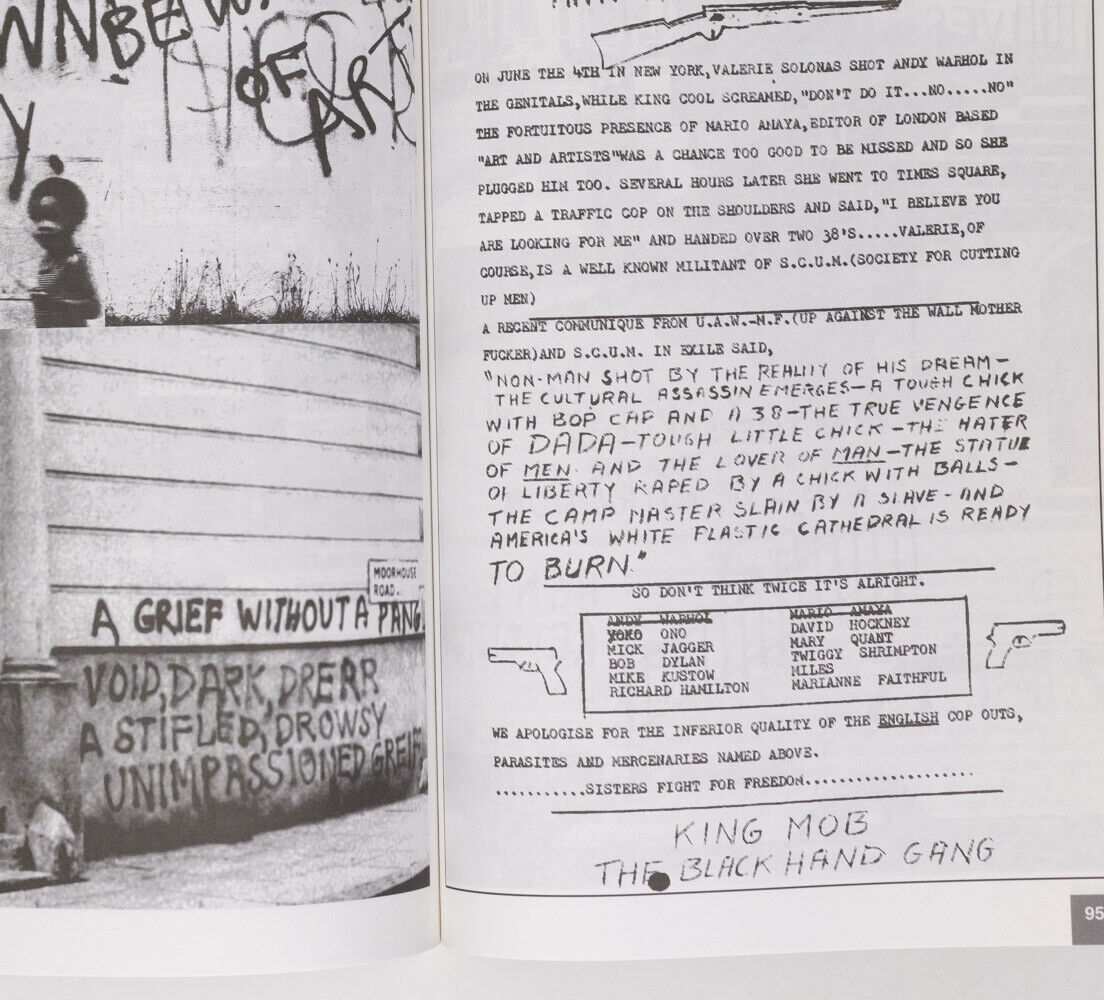 WNBEAW
OF
ART
Y
MOORHOUSE
ROAD.
A GRIEF WITHOUT A PANG
VOID, DARK, DREAR
A STIFLED, DROWSY
UNIMPASSIONED GREIF
ON JUNE THE 4TH IN NEW YORK,VALERIE SOLONAS SHOT ANDY WARHOL IN
THE GENITALS,WHILE KING COOL SCREAMED,"DON'T DO IT...NO.....NO"
THE FORTUITOUS PRESENCE OF MARIO AMAYA,EDITOR OF LONDON BASED
"ART AND ARTISTS"WAS A CHANCE TOO GOOD TO BE MISSED AND SO SHE
PLUGGED HIM TOO. SEVERAL HOURS LATER SHE WENT TO TIMES SQUARE,
TAPPED A TRAFFIC COP ON THE SHOULDERS AND SAID,"I BELIEVE YOU
ARE LOOKING FOR ME" AND HANDED OVER TWO 38'S.....VALERIE,OF
COURSE,IS A WELL KNOWN MILITANT OF S.C.U.M.(SOCIETY FOR CUTTING
UP MEN)
A RECENT COMMUNIQUE FROM U.A.W.-M.F.(UP AGAINST THE WALL MOTHER
FUCKER)AND S.C.U.M. IN EXILE SAID,
"NON-MAN SHOT BY THE REALITY OF HIS DREAM—
THE CULTURAL ASSASSIN EMERGES—A TOUGH CHICK
WITH BOP CAP AND A 38—THE TRUE VENGENCE
OF DADA—TOUGH LITTLE CHICK—THE HATER
OF MEN AND THE LOVER OF MAN—THE STATUE
OF LIBERTY RAPED BY A CHICK WITH BALLS—
THE CAMP MASTER SLAIN BY A SLAVE-AND
AMERICA'S WHITE PLASTIC CATHEDRAL IS READY
TO BURN."
SO DON'T THINK TWICE IT'S ALRIGHT.
ANDY WARHOL
YOKO ONO
MICK JAGGER
BOB DYLAN
MIKE KUSTOW
RICHARD HAMILTON
MARIO AMAYA
DAVID HOCKNEY
MARY QUANT
TWIGGY SHRIMPTON
MILES
MARIANNE FAITHFUL
WE APOLOGISE FOR THE INFERIOR QUALITY OF THE ENGLISH COP OUTS,
PARASITES AND MERCENARIES NAMED ABOVE.
..........SISTERS FIGHT FOR FREEDOM....................
KING MOB
THE BLACK HAND GANG
95